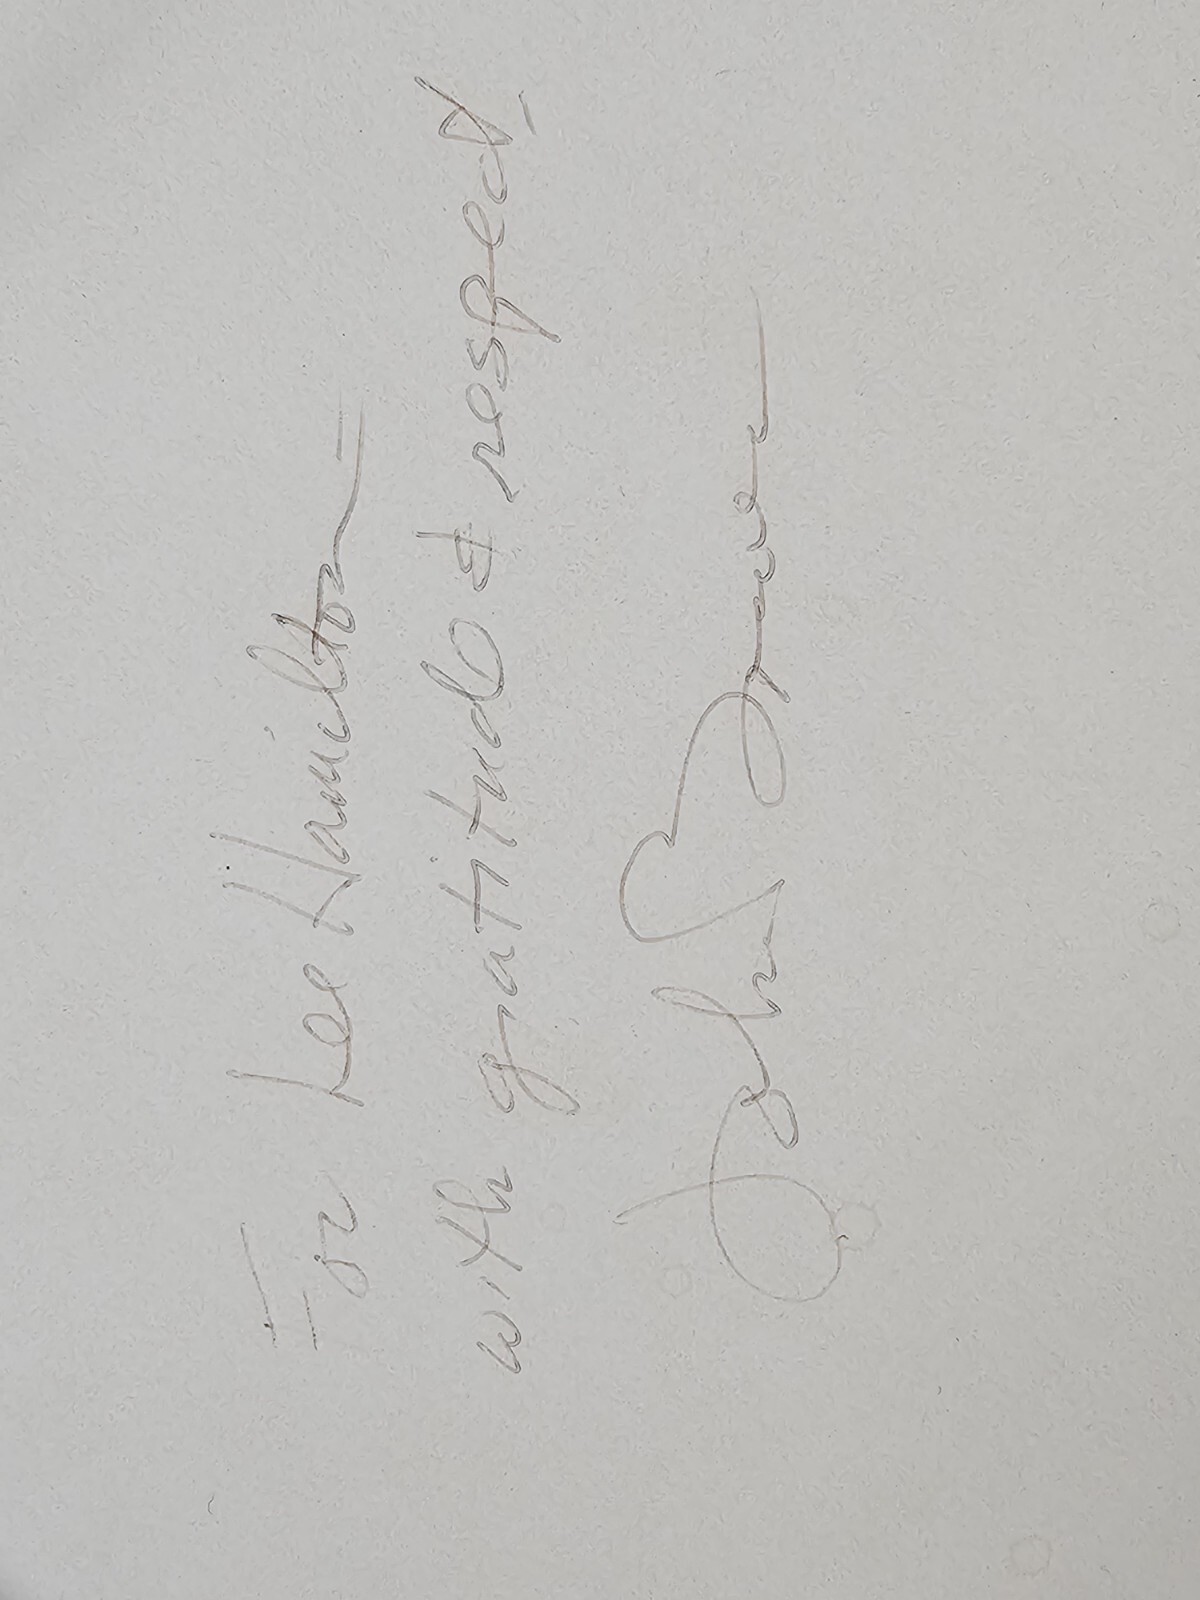 For Lee Hamilton —
with gratitude & respect,
John